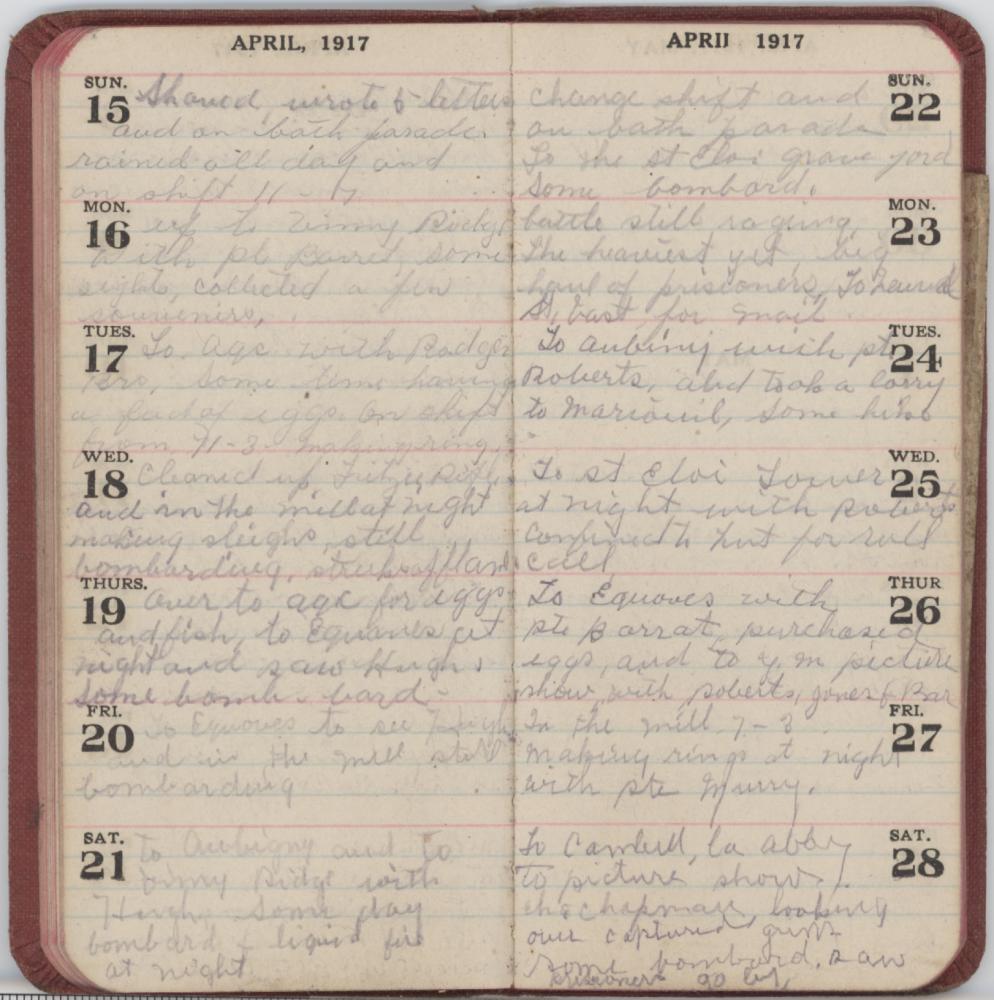 APRIL, 1917
SUN.
15
Shaved, wrote 6 letters
and on bath parade.
rained all day and
on shift 11 - 7
MON.
16
up to Vimy Ridge
with pte Barret, some
sights, collected a few
souvenirs,
TUES.
17
To Agc with Rodger
Bro, some time having
a feed of eggs on shift
from 11-3 making ring,
WED.
18
Cleaned up
and in the mill at night
making sleighs, still
bombarding,
THURS.
19
over to agc for eggs
and fish, to Equoves at
night and saw Hugh.
some bomb-bard-
FRI.
20
To Equoves to see Hugh
and in the mill still
bombarding
SAT.
21
to Aubigny and to
Vimy Ridge with
Hugh. Some day
bombard & liquid fire
at night
APRIL 1917
SUN.
22
Change shift and
on bath parade
To the st Eloi grave yard
some bombard.
MON.
23
battle still raging,
The heaviest yet big
haul of prisioners,
for mail
TUES.
24
To aubiny with pte
Roberts, and took a lorry
to Mariouil, some hike
WED.
25
To st Eloi Tower
at night with Roberts
confined to hut for roll
call
THUR
26
To Equoves with
pte Barrat, purchased
eggs, and to y.m picture
show, with roberts, jones & Bar
FRI.
27
In the mill 7-3
Making rings at night
with pte Murry.
SAT.
28
To Cambell, la abby
to picture show.
chapman, looking
over captured guns
some bombard. saw
prisioners go by,